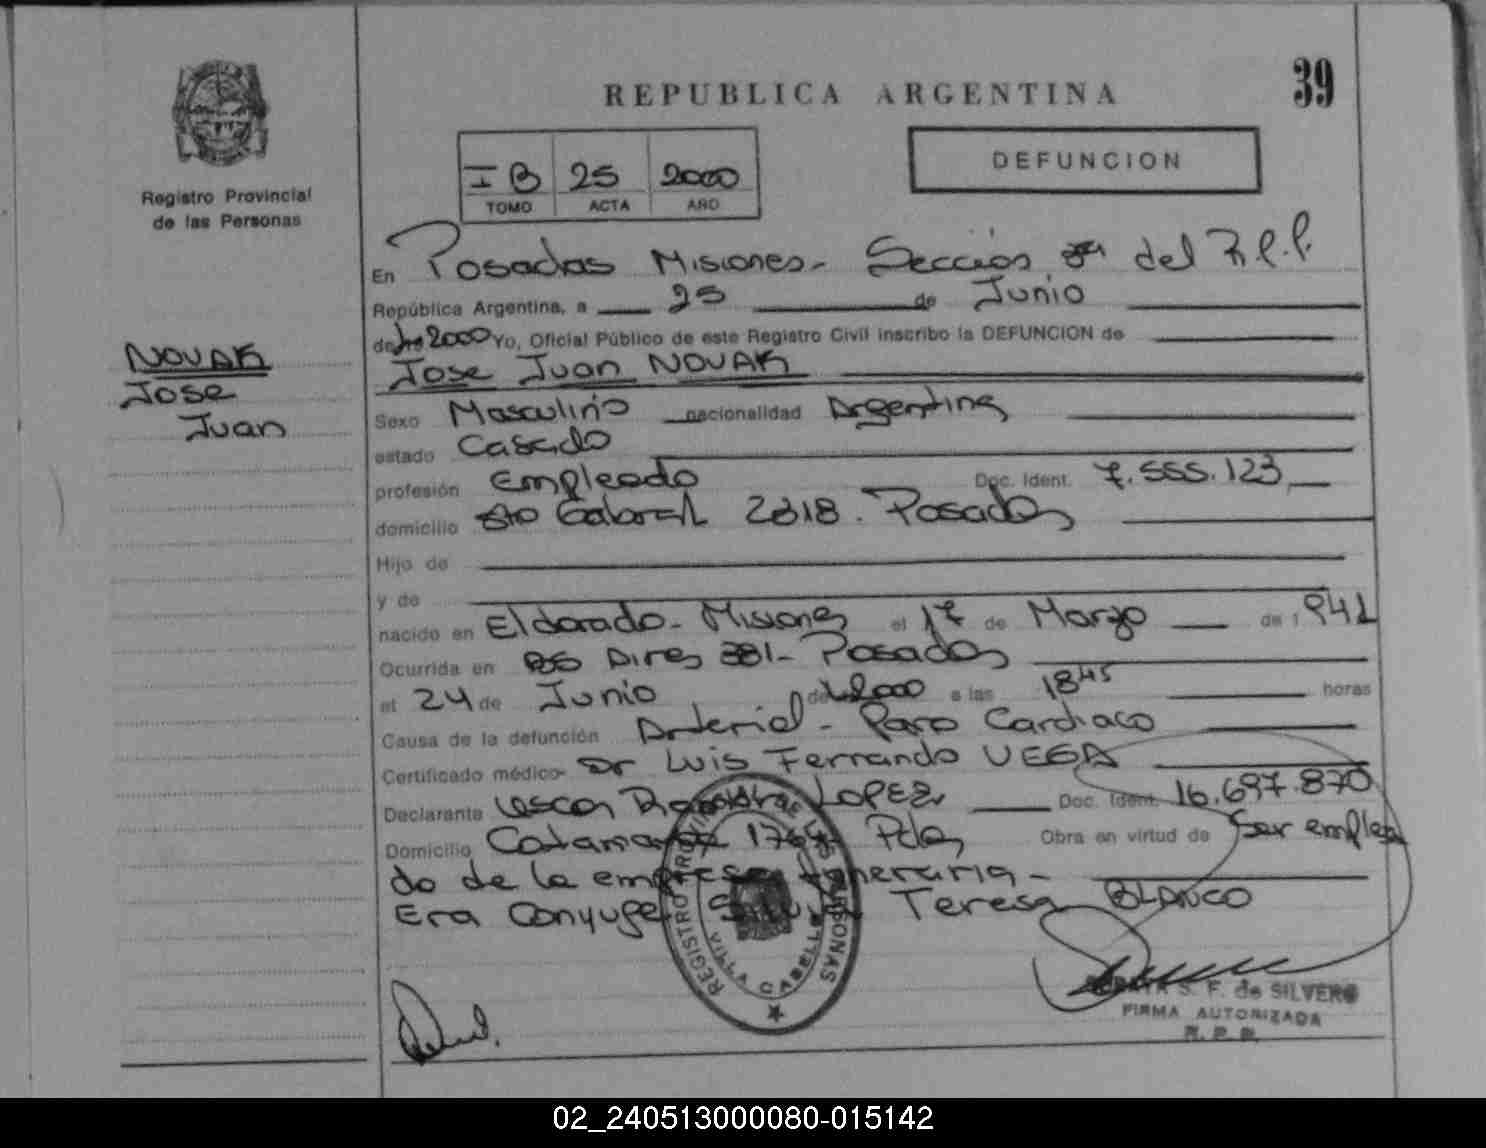 39
REPUBLICA ARGENTINA
DEFUNCION
I B 25 2000
TOMO ACTA AÑO
Registro Provincial
de las Personas
NOVAK
Jose
Juan
En Posadas Misiones - del R.P.P.
República Argentina, a 25 de Junio
de 2000 Yo, Oficial Público de este Registro Civil inscribo la DEFUNCION de
Jose Juan NOVAK
Sexo Masculino nacionalidad Argentina
estado Casado
profesión Empleado Doc. Ident. 7.555.123
domicilio Sto Cabral 2818. Posadas
Hijo de
y de
nacido en Eldorado - Misiones el 17 de Marzo de 1941
Ocurrida en Bs Aires 381 - Posadas
el 24 de Junio de 2000 a las 18 45 horas
Causa de la defunción Arterial - Paro Cardiaco
Certificado médico Dr Luis Fernando VEGA
Declarante LOPEZ Doc. Ident. 16.697.870
Domicilio Catamarca Pdas Obra en virtud de Ser emplea
do de la empresa funeraria -
Era Conyuge Teresa BLANCO
REGISTRO PROVINCIAL DE LAS PERSONAS
VILLA CABELLO
S. F. de SILVERO
FIRMA AUTORIZADA
R. P. P.
02_240513000080-015142